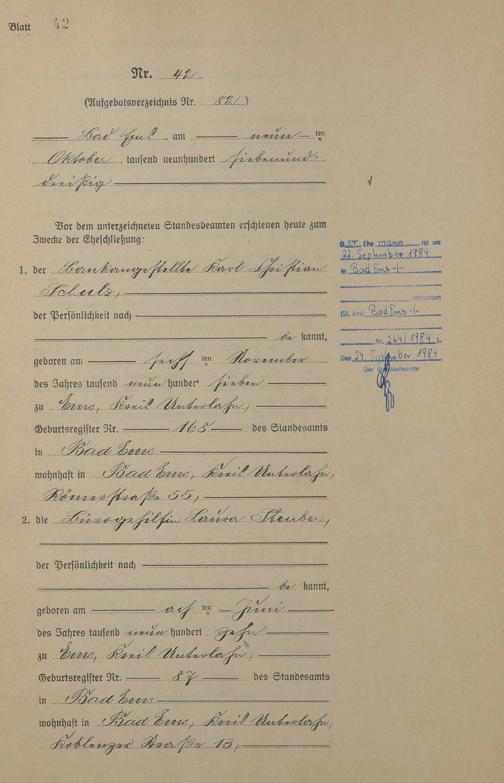 Blatt 42
Nr. 42
(Aufgebotsverzeichnis Nr. 82)
Bad Ems am neun ten
Oktober tausend neunhundert siebenund-
dreißig
Vor dem unterzeichneten Standesbeamten erschienen heute zum
Zwecke der Eheschließung:
1. der Bankangestellte Karl Christian
Schulz,
der Persönlichkeit nach
be kannt,
geboren am sechs ten November
des Jahres tausend neun hundert sieben
zu Ems, Kreis Unterlahn,
Geburtsregister Nr. 168 des Standesamts
in Bad Ems
wohnhaft in Bad Ems, Kreis Unterlahn,
Römerstraße 55,
2. die Bürogehilfin Laura Steuber,
der Persönlichkeit nach
be kannt,
geboren am ach ten Juni
des Jahres tausend neun hundert zehn
zu Ems, Kreis Unterlahn,
Geburtsregister Nr. 87 des Standesamts
in Bad Ems
wohnhaft in Bad Ems, Kreis Unterlahn,
Koblenzer Straße 13,
D er Ehe mann ist am
22. September 1984
in Bad Ems
verstorben
(St. Amt Bad Ems
Nr. 264/1984).
Den 24. September 1984
Der Standesbeamte